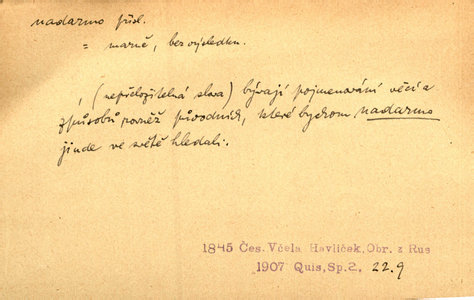 nadarmo přísl.
= marně, bez výsledku.
, (nepřeložitelná slova) bývají pojmenování věcí a
způsobů rovněž původních, které bychom nadarmo
jinde ve světě hledali.
1845 Čes. Včela Havlíček, Obr. z Rus
1907 Quis, Sp.2, 22.9